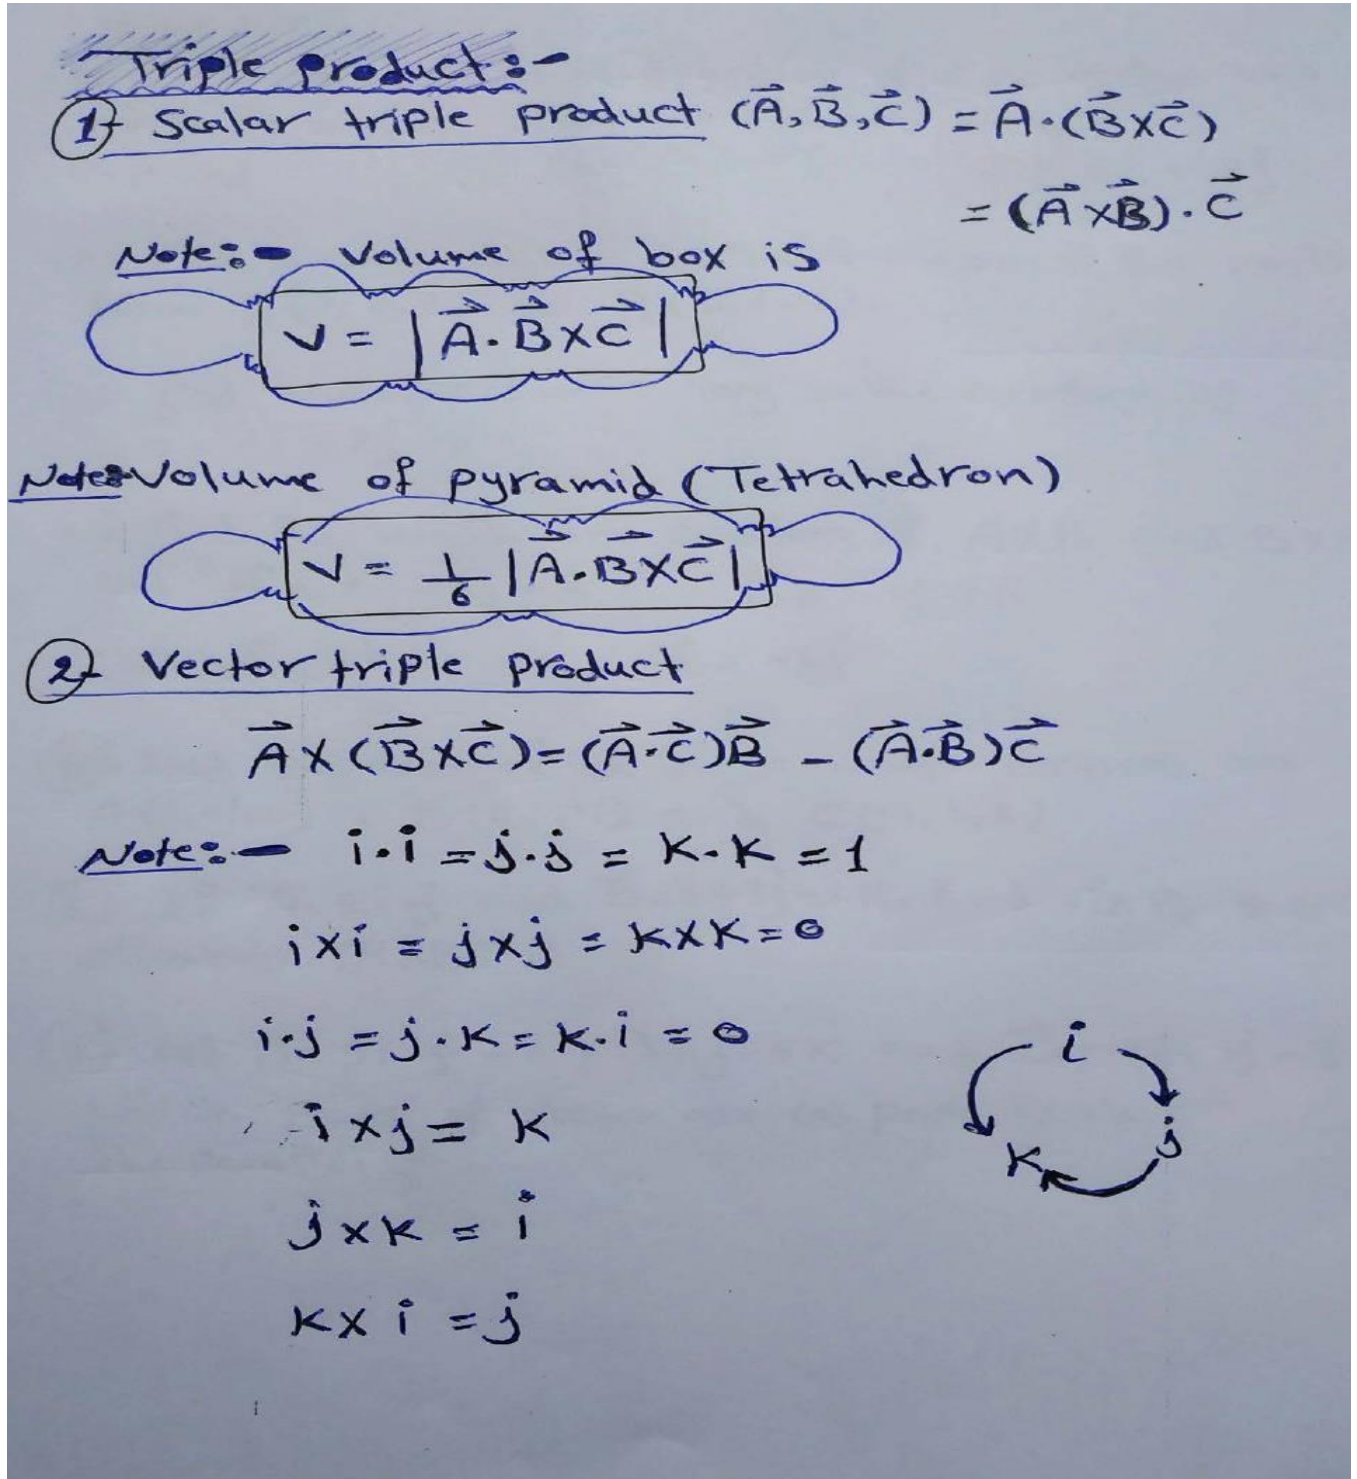 Triple product:-
1- Scalar triple product (A⃗, B⃗, C⃗) = A⃗·(B⃗×C⃗)
= (A⃗×B⃗)·C⃗
Note:- Volume of box is
V = |A⃗·B⃗×C⃗|
Note:- Volume of pyramid (Tetrahedron)
V = 1/6 |A⃗·B⃗×C⃗|
2- Vector triple product
A⃗×(B⃗×C⃗) = (A⃗·C⃗)B⃗ - (A⃗·B⃗)C⃗
Note:- i·i = j·j = k·k = 1
i×i = j×j = k×k = 0
i·j = j·k = k·i = 0
i×j = k
j×k = i
k×i = j
i
k j